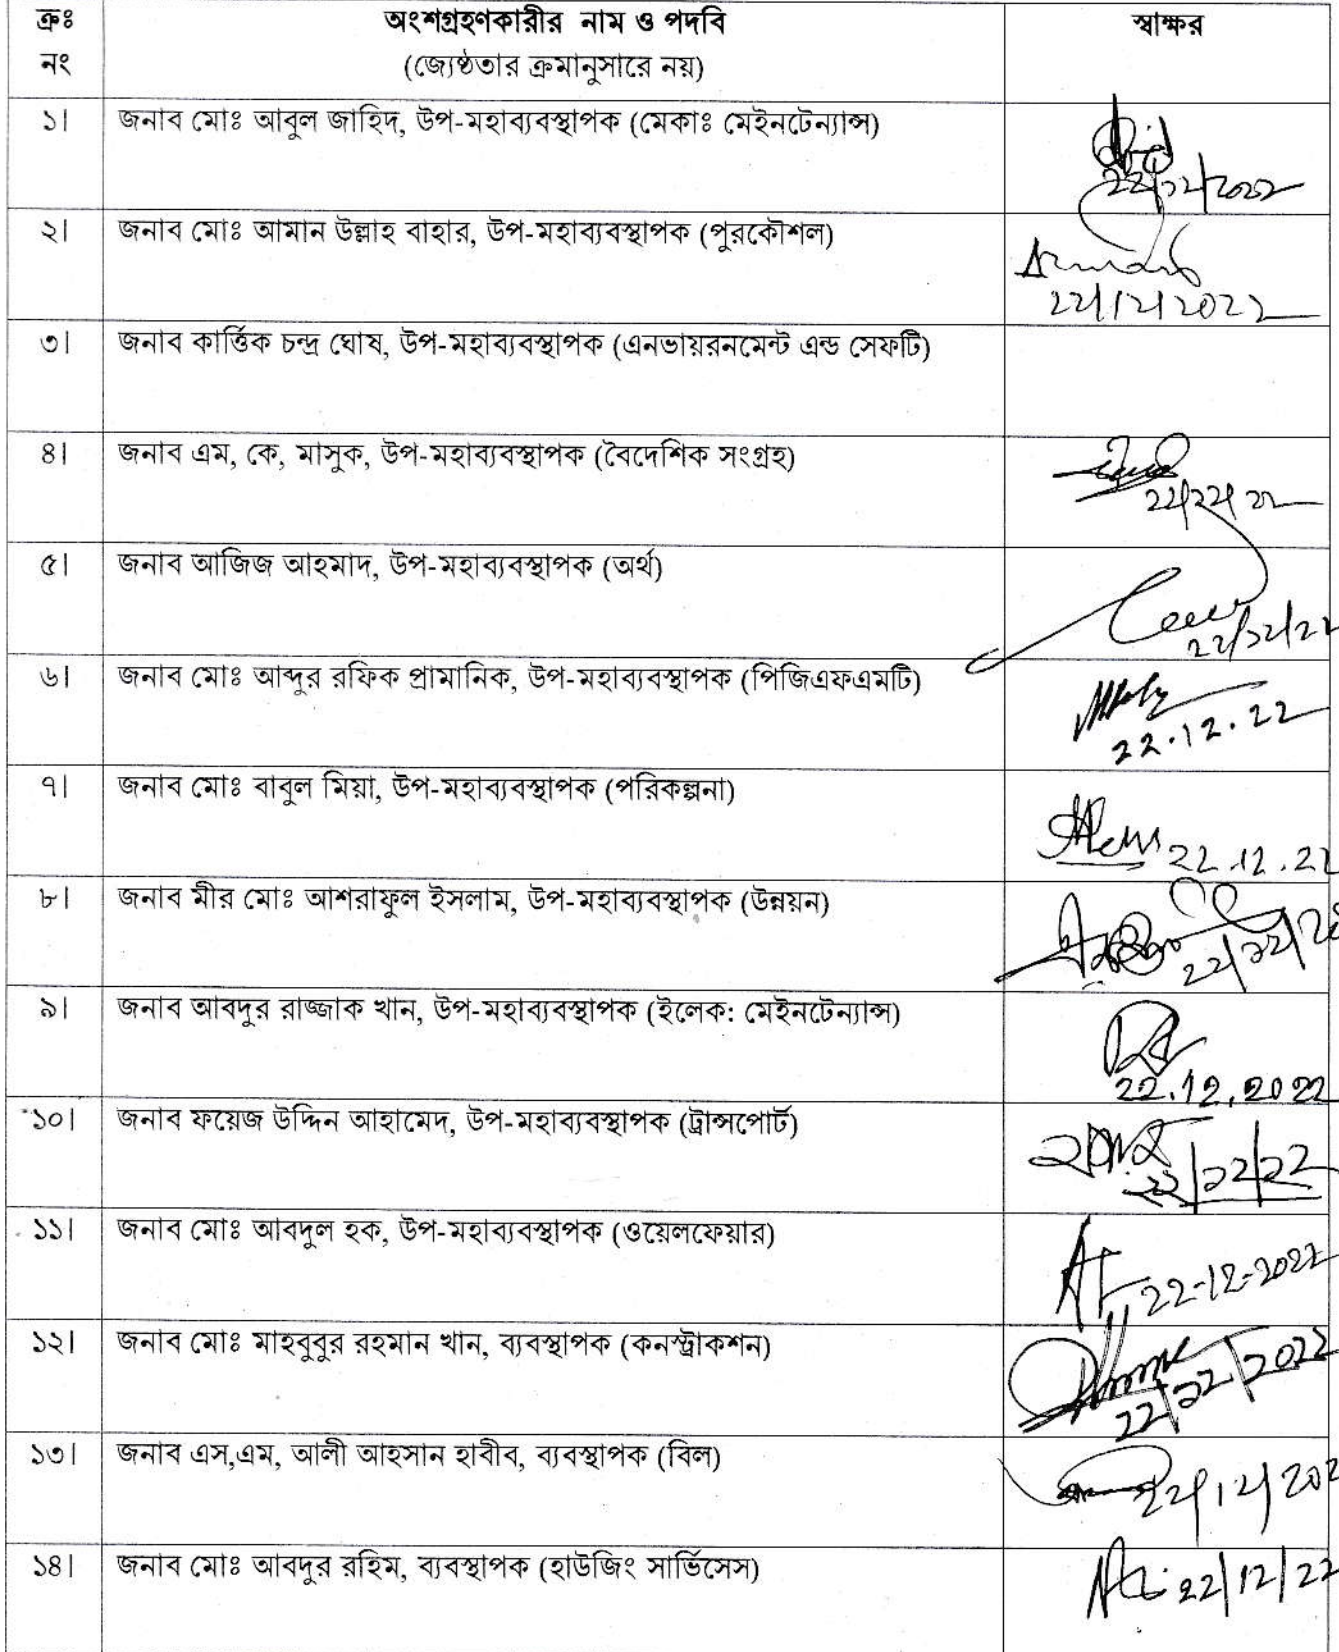 ক্রঃ নং অংশগ্রহণকারীর নাম ও পদবি স্বাক্ষর
(জ্যেষ্ঠতার ক্রমানুসারে নয়)
১। জনাব মোঃ আবুল জাহিদ, উপ-মহাব্যবস্থাপক (মেকাঃ মেইনটেন্যান্স)
22/12/2022
২। জনাব মোঃ আমান উল্লাহ বাহার, উপ-মহাব্যবস্থাপক (পুরকৌশল)
22/12/2022
৩। জনাব কার্ত্তিক চন্দ্র ঘোষ, উপ-মহাব্যবস্থাপক (এনভায়রনমেন্ট এন্ড সেফটি)
৪। জনাব এম, কে, মাসুক, উপ-মহাব্যবস্থাপক (বৈদেশিক সংগ্রহ)
৫। জনাব আজিজ আহমাদ, উপ-মহাব্যবস্থাপক (অর্থ)
22/12/22
৬। জনাব মোঃ আব্দুর রফিক প্রামানিক, উপ-মহাব্যবস্থাপক (পিজিএফএমটি)
22.12.22
৭। জনাব মোঃ বাবুল মিয়া, উপ-মহাব্যবস্থাপক (পরিকল্পনা)
22.12.22
৮। জনাব মীর মোঃ আশরাফুল ইসলাম, উপ-মহাব্যবস্থাপক (উন্নয়ন)
৯। জনাব আবদুর রাজ্জাক খান, উপ-মহাব্যবস্থাপক (ইলেক: মেইনটেন্যান্স)
22.12.2022
১০। জনাব ফয়েজ উদ্দিন আহামেদ, উপ-মহাব্যবস্থাপক (ট্রান্সপোর্ট)
২২/১২/২২
১১। জনাব মোঃ আবদুল হক, উপ-মহাব্যবস্থাপক (ওয়েলফেয়ার)
22-12-2022
১২। জনাব মোঃ মাহবুবুর রহমান খান, ব্যবস্থাপক (কনস্ট্রাকশন)
22/12/2022
১৩। জনাব এস,এম, আলী আহসান হাবীব, ব্যবস্থাপক (বিল)
22/12/202
১৪। জনাব মোঃ আবদুর রহিম, ব্যবস্থাপক (হাউজিং সার্ভিসেস)
22/12/22